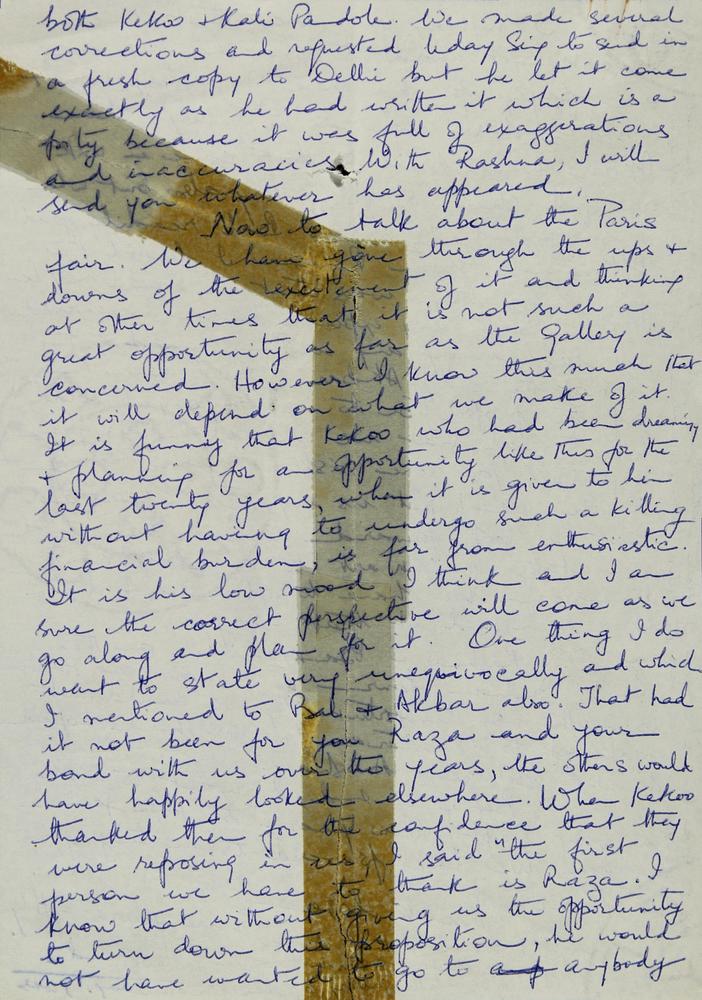 both Kekoo + Kali Pandole. We made several
corrections and requested Uday Sing to send in
a fresh copy to Delhi but he let it come
exactly as he had written it which is a
pity because it was full of exaggerations
and inaccuracies. With Rashna, I will
send you whatever has appeared.
Now to talk about the Paris
fair. We have gone through the ups +
downs of the excitement of it and thinking
at other times that it is not such a
great opportunity as far as the Gallery is
concerned. However I know this much that
it will depend on what we make of it.
It is funny that Kekoo who had been dreaming
+ planning for an opportunity like this for the
last twenty years, when it is given to him
without having to undergo such a killing
financial burden, is far from enthusiastic.
It is his low mood I think and I am
sure the correct perspective will come as we
go along and plan for it. One thing I do
want to state very unequivocally and which
I mentioned to Bal + Akbar also. That had
it not been for you Raza and your
bond with us over the years, the others would
have happily looked elsewhere. When Kekoo
thanked them for the confidence that they
were reposing in us, I said "the first
person we have to thank is Raza. I
know that without giving us the opportunity
to turn down this proposition, he would
not have wanted to go to anybody